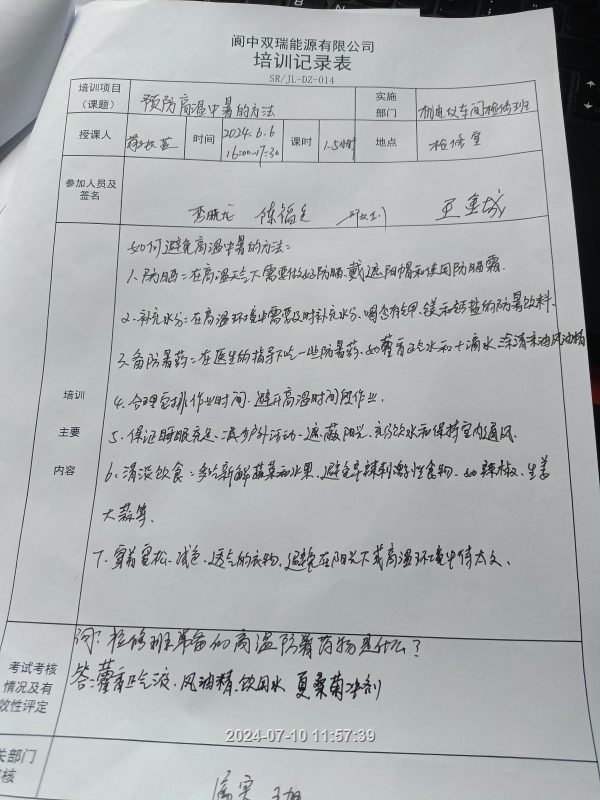 阆中双瑞能源有限公司
培训记录表
SR/JL-DZ-014
培训项目（课题） 预防高温中暑的方法 实施部门 机电仪车间检修班
授课人 时间 2024.6.6 16:00-17:30 课时 1.5小时 地点 检修室
参加人员及签名 李晓龙 陈福之 王金城
培训主要内容
如何避免高温中暑的方法：
1、防晒：在高温天气下需要做好防晒、戴遮阳帽和使用防晒霜.
2、补充水分：在高温环境中需要及时补充水分、喝含有钾、镁和钙盐的防暑饮料.
3、备防暑药：在医生的指导下吃一些防暑药、如藿香正气水和十滴水、涂清凉油风油精
4、合理安排作业时间、避开高温时间段作业.
5、保证睡眠充足、减少户外活动、遮蔽阳光、充分饮水和保持室内通风.
6、清淡饮食：多吃新鲜蔬菜和水果、避免辛辣刺激性食物、如辣椒、生姜
大蒜等.
7、穿着宽松、浅色、透气的衣物、避免在阳光下或高温环境中待太久.
考试考核情况及有效性评定
问：检修班准备的高温防暑药物是什么？
答：藿香正气液、风油精、饮用水 夏桑菊冲剂
关部门
核
2024-07-10 11:57:39